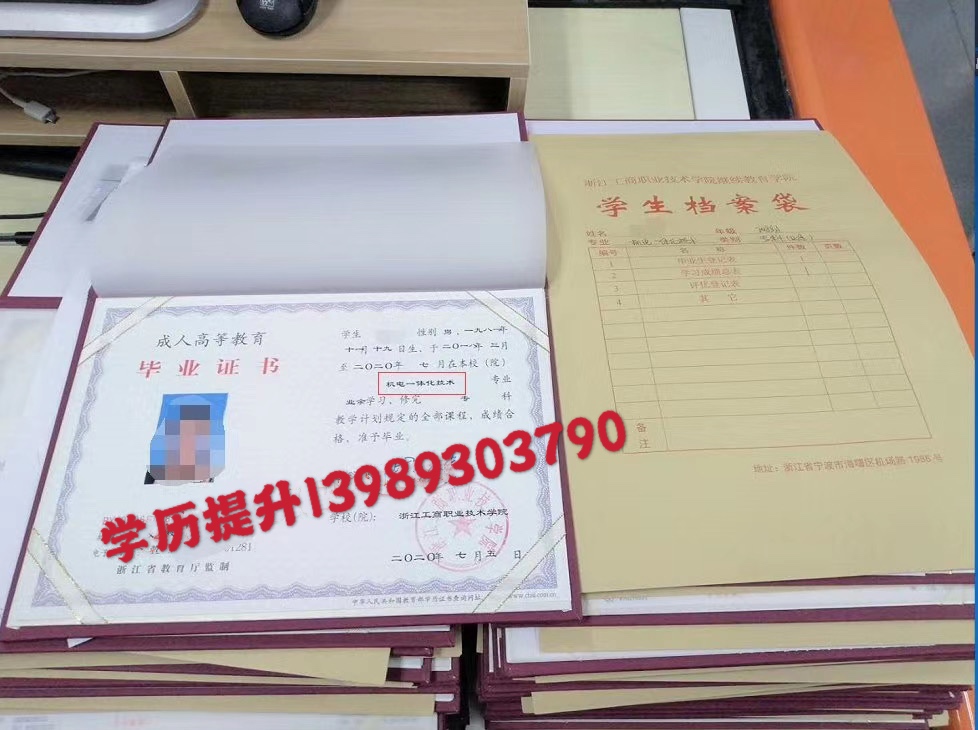 成人高等教育
毕业证书
学生 性别 男，一九八一年
十一月十九日生、于二〇一八年 二月
至二〇二〇年 七月在本校(院)
机电一体化技术 专业
业余学习、修完 专 科
教学计划规定的全部课程，成绩合
格，准予毕业。
学历提升13989303790
学校(院)： 浙江工商职业技术学院
01281
二〇二〇年 七月五日
浙江省教育厅监制
中华人民共和国教育部学历证书查询网址：
浙江工商职业技术学院继续教育学院
学生档案袋
姓名 年级
专业 机电一体化技术 类别
编号 名 称 件数 页数
1 毕业生登记表 1
2 学习成绩总表 1
3 评优登记表
4 其 它
备
注
地址：浙江省宁波市海曙区机场路1988号